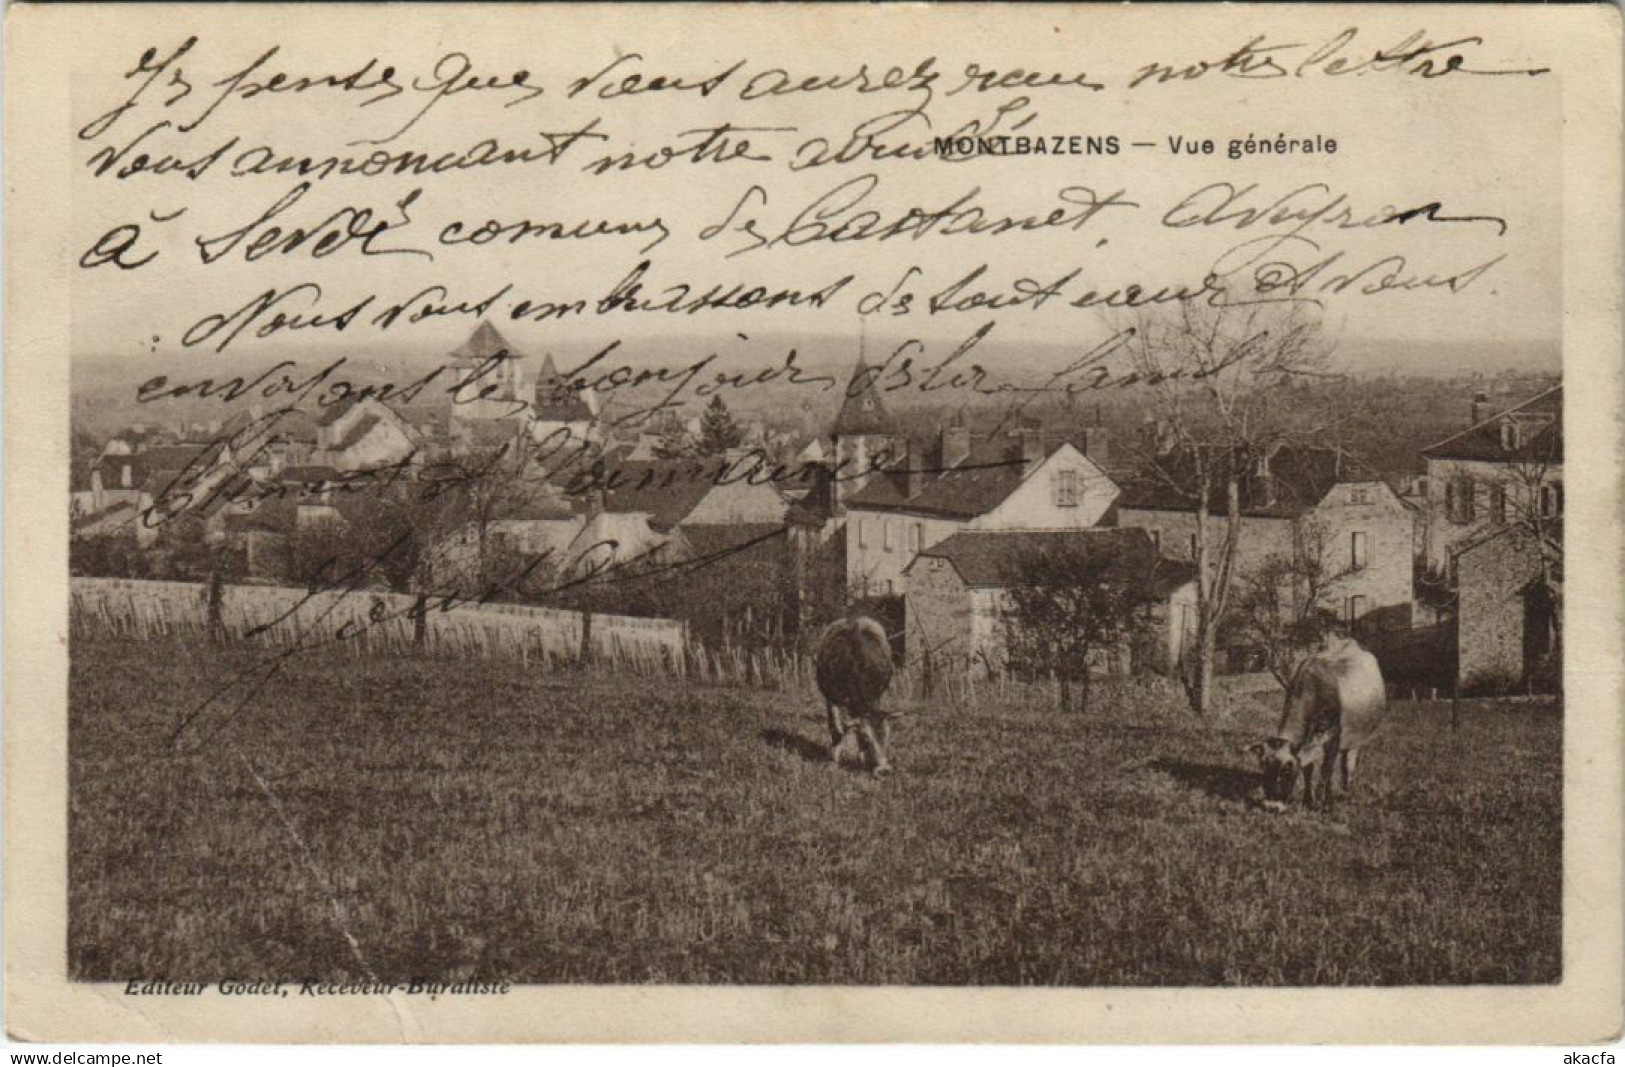 Je pense que vous aurez reçu notre lettre
vous annonçant notre arrivée
MONTBAZENS — Vue générale
à comune de Castanet. Aveyron
Nous vous embrassons de tout cœur et vous
envoyons le bonjour de la famille
Clément et Germaine
Editeur Godet, Receveur-Buraliste
www.delcampe.net
akacfa